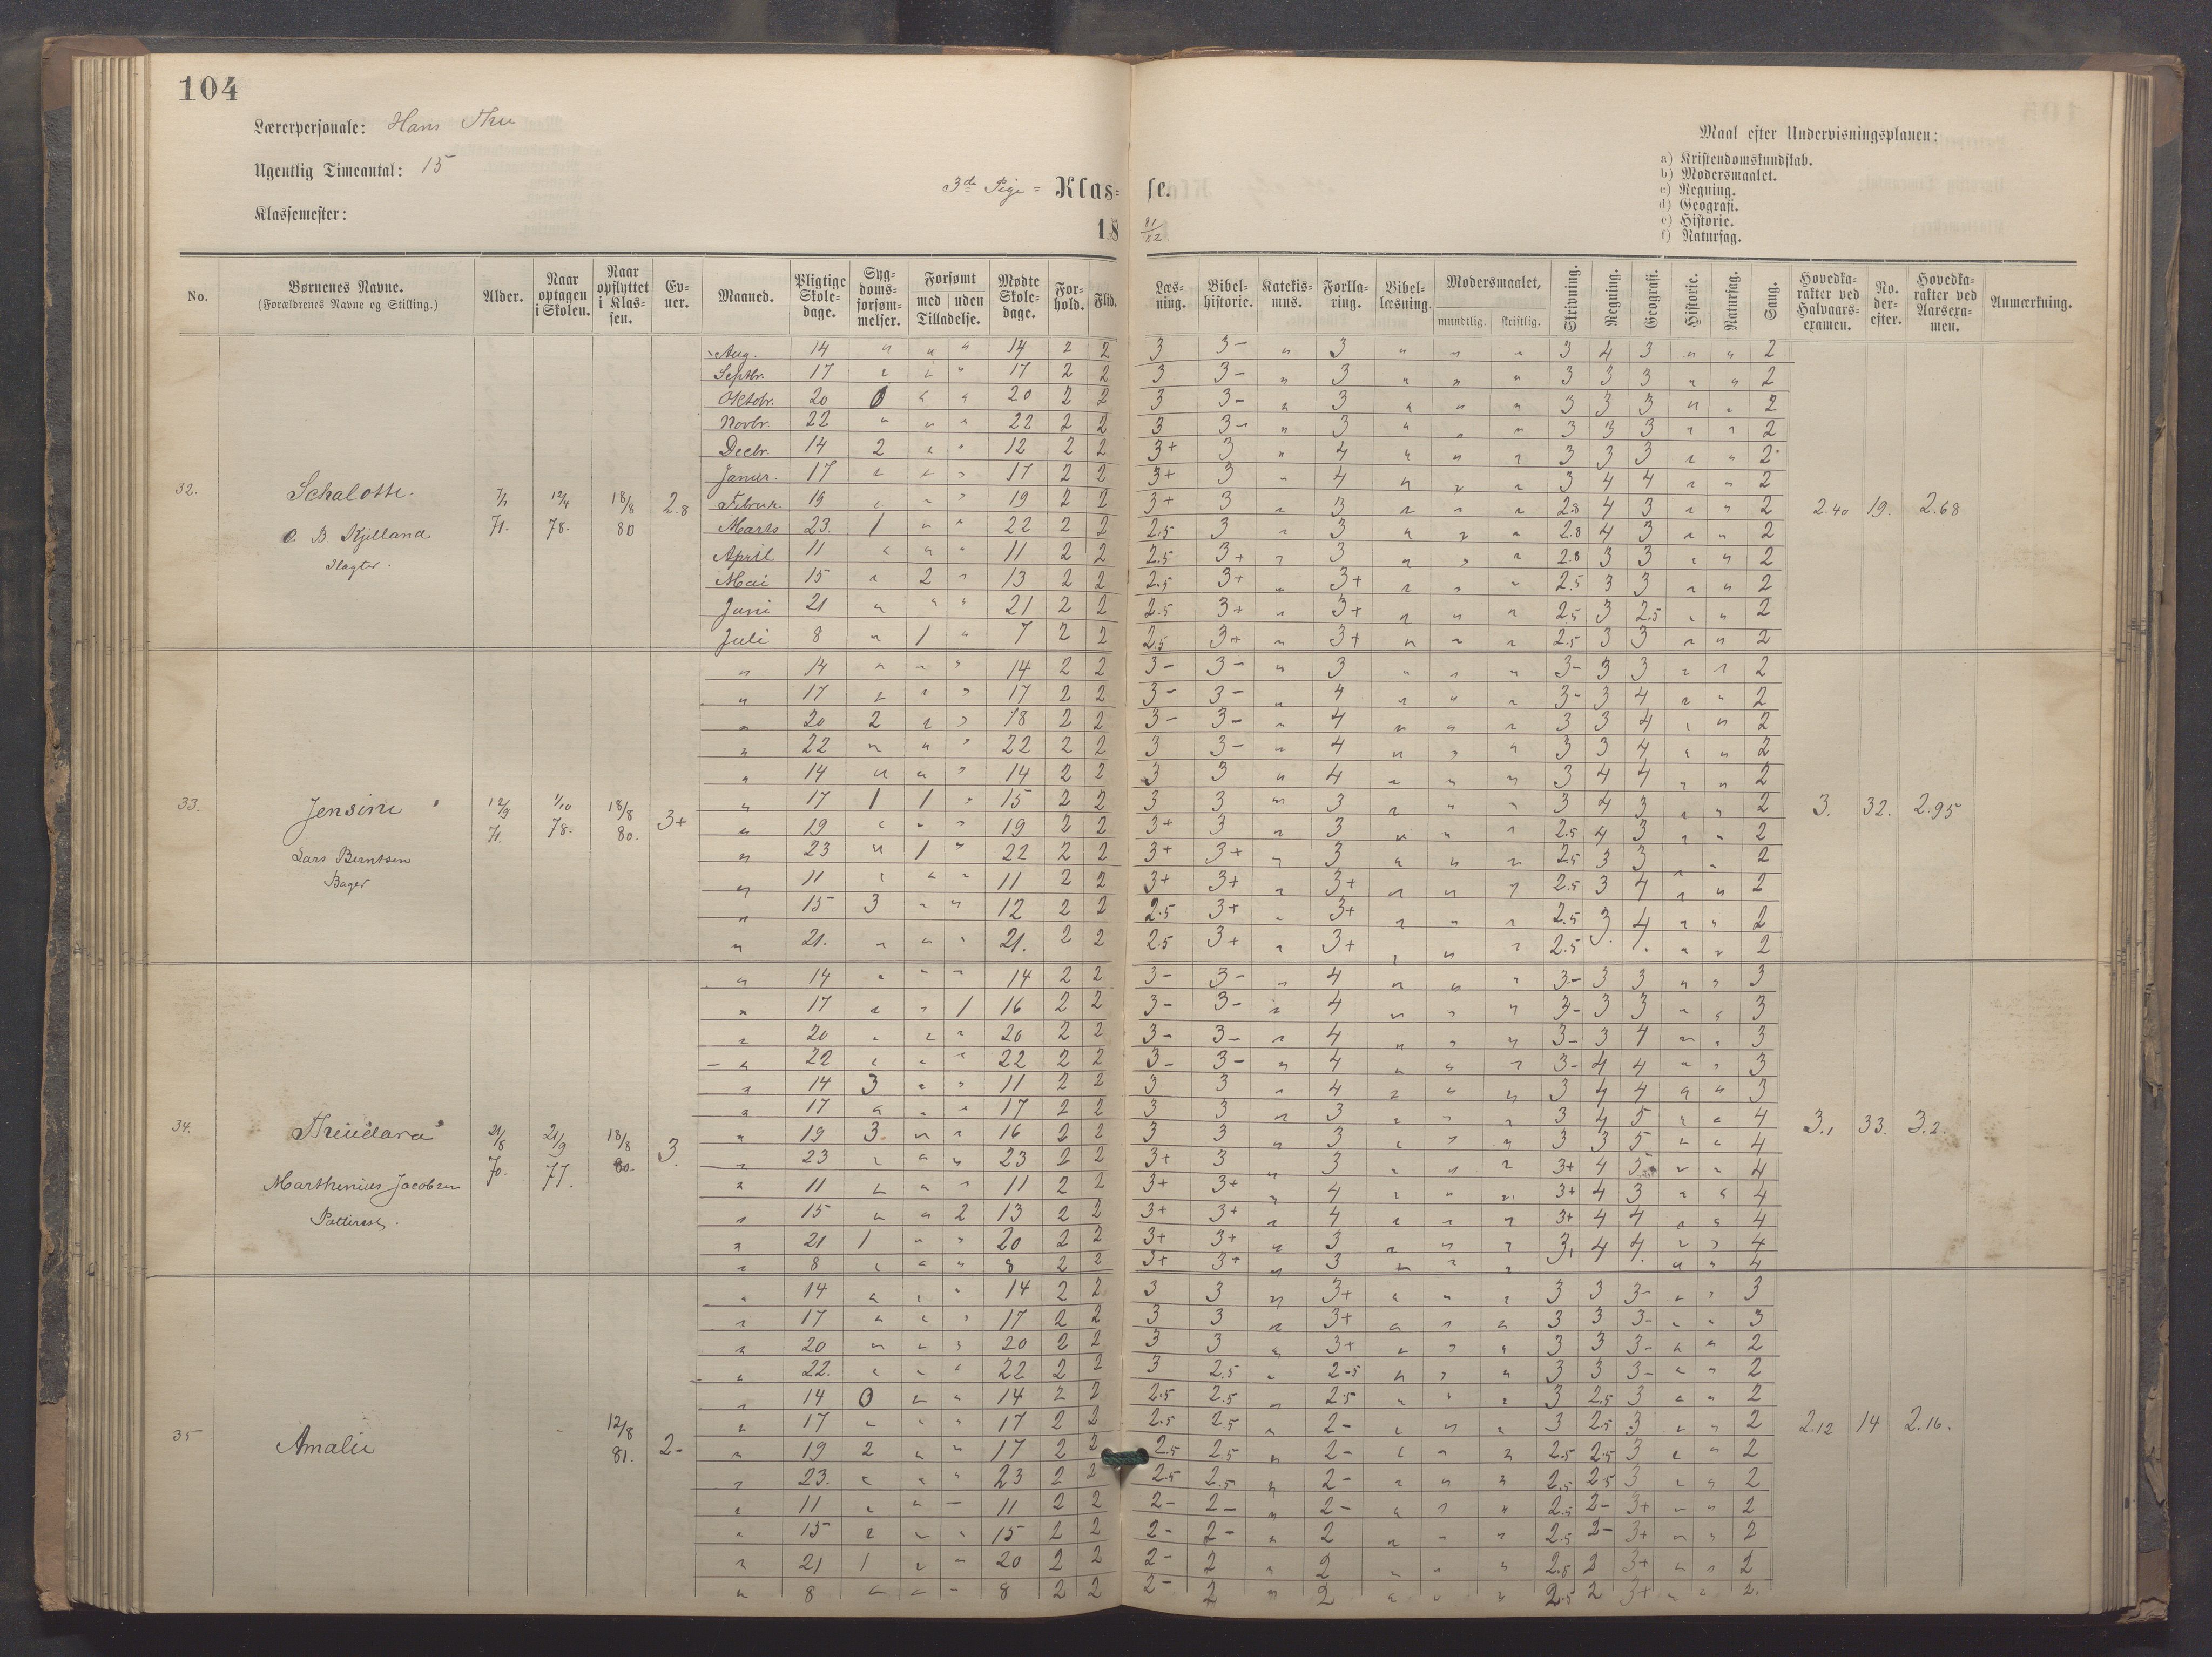 104
Lærerpersonale: Hans
Ugentlig Timeantal: 15
Klassemester:
3de Pige= Klas= se.
18 81/82
Maal efter Undervisningsplanen:
a) Kristendomskundskab.
b) Modersmaalet.
c) Regning.
d) Geografi.
e) Historie.
f) Naturfag.
No. Børnenes Navne. (Forældrenes Navne og Stilling.) Alder. Naar optagen i Skolen. Naar opflyttet i Klassen. Evner. Maaned. Pligtige Skoledage. Sygdomsforsømmelser. Forsømt med uden Tilladelse. Mødte Skoledage. Forhold. Flid. Læsning. Bibelhistorie. Katekismus. Forklaring. Bibellæsning. Modersmaalet, mundtlig. skriftlig. Skrivning. Regning. Geografi. Historie. Naturfag. Sang. Hovedkarakter ved Halvaarsexamen. No. derefter. Hovedkarakter ved Aarsexamen. Anmærkning.
32. Schalotte. O. B. Kjelland Slagter. 7/1 71. 12/4 78. 18/8 80 2.8 2.40 19. 2.68
Aug. 14 " " " 14 2 2 3 3- " 3 " " " 3 4 3 " " 2
Septbr. 17 " " " 17 2 2 3 3- " 3 " " " 3 3 3 " " 2
Oktobr. 20 0 " " 20 2 2 3 3- " 3 " " " 3 3 3 " " 2
Novbr. 22 " " " 22 2 2 3 3- " 3 " " " 3 3 3 " " 2
Decbr. 14 2 " " 12 2 2 3+ 3 " 4 " " " 3 3 3 " " 2
Januar. 17 " " " 17 2 2 3+ 3 " 4 " " " 3 4 4 " " 2
Februar 19 " " " 19 2 2 3+ 3 " 3 " " " 2.8 4 3 " " 2
Marts 23. 1 " " 22 2 2 2.5 3 " 3 " " " 2.8 4 3 " " 2
April 11 " " " 11 2 2 2.5 3+ " 3 " " " 2.8 3 3 " " 2
Mai 15 " 2 " 13 2 2 2.5 3+ " 3+ " " " 2.5 3 3 " " 2
Juni 21 " " " 21 2 2 2.5 3+ " 3+ " " " 2.5 3 2.5 " " 2
Juli 8 " 1 " 7 2 2 2.5 3+ " 3+ " " " 2.5 3 3 " " 2
33. Jensine Lars Berntsen Bager 12/9 71. 1/10 78. 18/8 80. 3+ 3. 32. 2.95
" 14 " " " 14 2 2 3- 3- " 3 " " " 3- 3 3 " " 2
" 17 " " " 17 2 2 3- 3- " 4 " " " 3- 3 4 " " 2
" 20 2 " " 18 2 2 3- 3- " 4 " " " 3 3 4 " " 2
" 22 " " " 22 2 2 3 3- " 4 " " " 3 3 4 " " 2
" 14 " " " 14 2 2 3 3 " 4 " " " 3 4 4 " " 2
" 17 1 1 " 15 2 2 3 3 " 3 " " " 3 4 3 " " 2
" 19 " " " 19 2 2 3+ 3 " 3 " " " 2.5 4 3 " " 2
" 23 " 1 " 22 2 2 3+ 3+ " 3 " " " 2.5 3 3 " " 2
" 11 " " " 11 2 2 3+ 3+ " 3+ " " " 2.5 3 4 " " 2
" 15 3 " " 12 2 2 2.5 3+ " 3+ " " " 2.5 3 4 " " 2
" 21. " " " 21. 2 2 2.5 3+ " 3+ " " " 2.5 " " " " 2
34. Marthinius Jacobsen 21/8 70. 21/9 77. 18/8 80. 3. 3.1 33. 3.2.
" 14 " " " 14 2 2 3- 3- " 4 " " " 3- 3 3 " " 3
" 17 " " 1 16 2 2 3- 3- " 4 " " " 3- 3 3 " " 3
" 20 " " " 20 2 2 3- 3- " 4 " " " 3- 3 4 " " 3
" 22 " " " 22 2 2 3- 3- " 4 " " " 3- 4 4 " " 3
" 14 3 " " 11 2 2 3 3 " 4 " " " 3 4 4 " " 3
" 17 " " " 17 2 2 3 3 " 3 " " " 3 4 5 " " 4
" 19 3 " " 16 2 2 3 3 " 3 " " " 3 3 5 " " 4
" 23 " " " 23 2 2 3+ 3 " 3 " " " 3+ 4 5 " " 4
" 11 " " " 11 2 2 3+ 3+ " 4 " " " 3+ 4 3 " " 4
" 15 " " 2 13 2 2 3+ 3+ " 4 " " " 3+ 4 4 " " 4
" 21 1 " " 20 2 2 3+ 3+ " 3 " " " 3, 4 4 " " 4
" 8 " " " 8 2 2 3+ 3+ " 3 " " " " " 4
35 Amalie 12/8 81. 2- 2.12 14 2.16.
" 14 " " " 14 2 2 3 3 " 3+ " " " 3 3 3- " " 3
" 17 " " " 17 2 2 3 3 " 3+ " " " 3 3 3- " " 3
" 20 " " " 20 2 2 3 3 " 3+ " " " 3 3 3- " " 2
" 22. " " " 22 2 2 3 2.5 " 2-5 " " " 3 3 3- " " 2
" 14 0 " " 14 2 2 2.5 2.5 " 2.5 " " " 3 2.5 3 " " 2
" 17 " " " 17 2 2 2.5 2.5 " 2- " " " 3 2.5 3 " " 2
" 19 2 " " 17 2 2 2.5 2.5 " 2- " " " 2.5 2.5 3 " " 2
" 23. " " " 23 2 2 2.5 2.5 " 2- " " " 2.5 2.5 3 " " 2
" 11 " " - 11 2 2 2- 2- " 2- " " " 2.5 2- 3+ " " 2
" 15 " " " 15 2 2 2- 2- " 2 " " " 2.5 2- 3+ " " 2
" 21 1 " - 20 2 2 2- 2 " 2 " " " 2.8 2 3+ " " 2
" 8 " " - 8 2 2 2- 2 " 2 " " " 2.5 2 3+ " " 2.